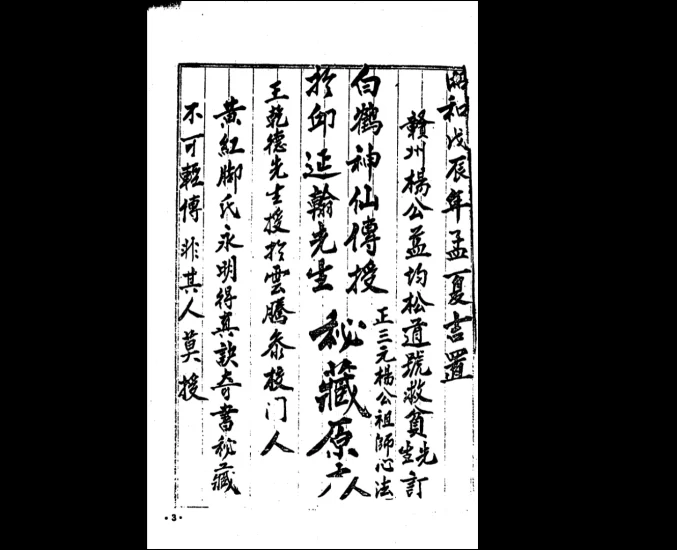 昭和戊辰年孟夏吉置
贛州楊公益均松道號救貧先生訂
白鶴神仙傳授
正三元楊公祖師心法
於邱延翰先生
秘藏原 人
王乾德先生授於雲騰 校门人
黃紅脚氏永明得真訣奇書秘藏
不可輕傳非其人莫授
·3·